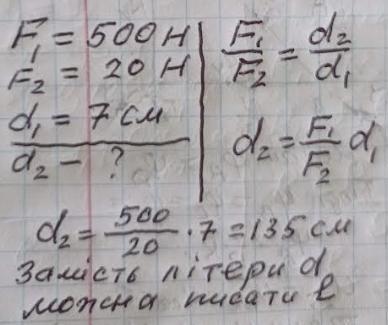 F₁ = 500 Н
F₂ = 20 Н
d₁ = 7 см
d₂ - ?
F₁/F₂ = d₂/d₁
d₂ = F₁/F₂ d₁
d₂ = 500/20 · 7 = 135 см
Замість літери d
можна писати ℓ